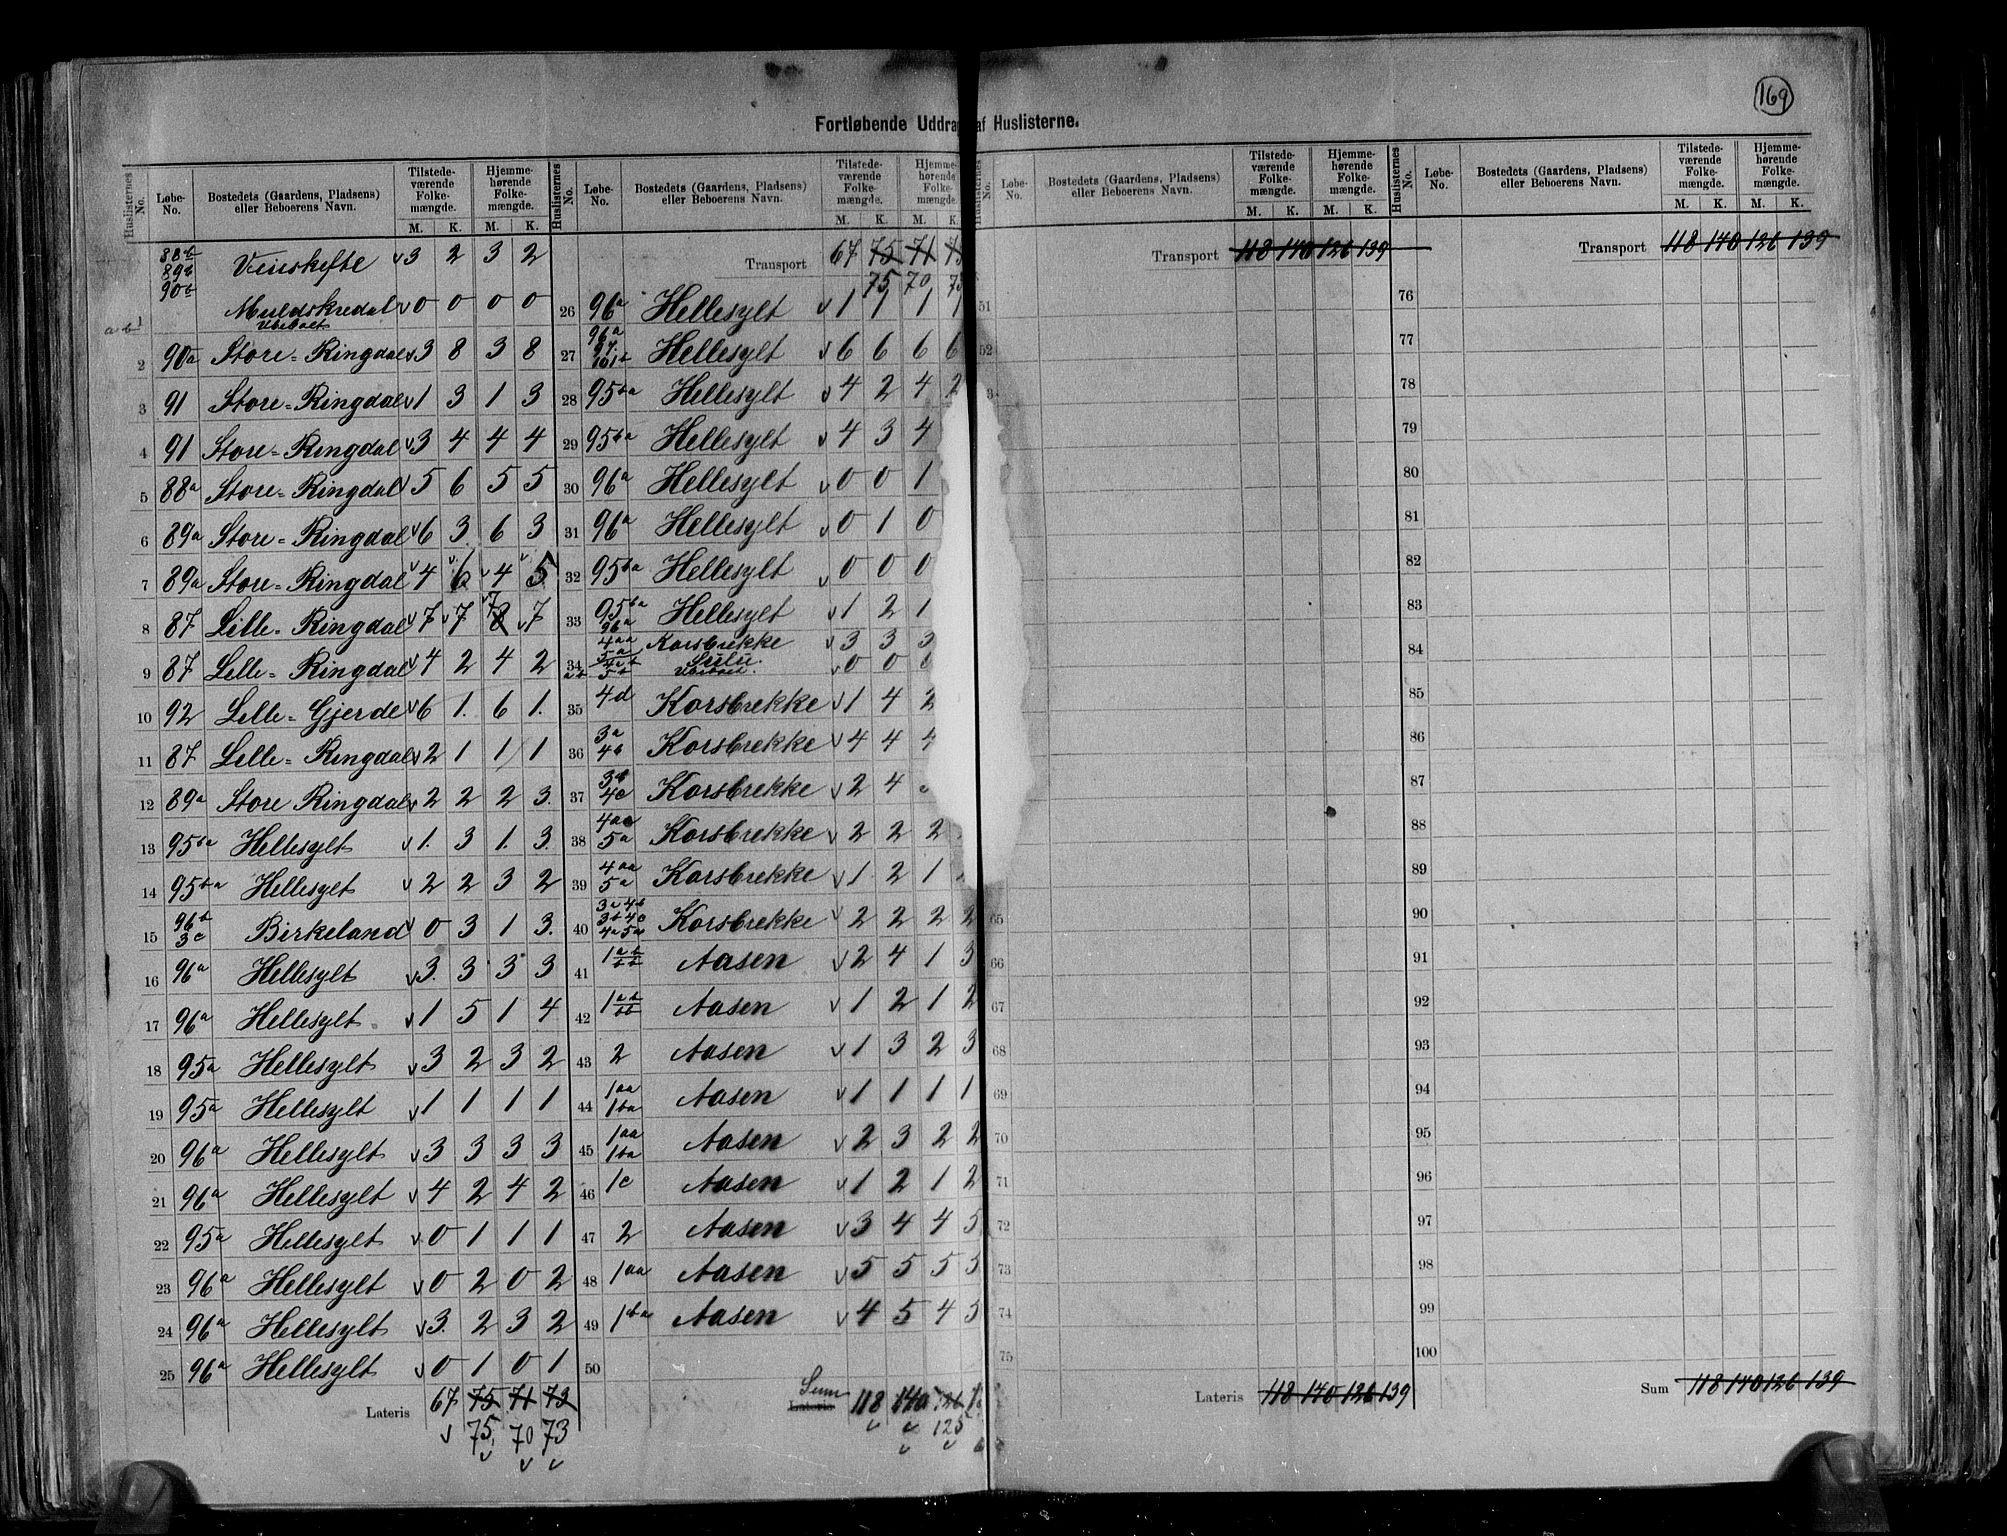 169
Fortløbende Uddrag af Huslisterne.
Huslisternes No. | Løbe-No. | Bostedets (Gaardens, Pladsens) eller Beboerens Navn. | Tilstedeværende Folkemængde. M. K. | Hjemmehørende Folkemængde. M. K.
88b 89b 90b 3 2 3 2
ab 1 Muldskredal Ubeboet 0 0 0 0
2 90a Store-Ringdal 3 8 3 8
3 91 Store-Ringdal 1 3 1 3
4 91 Store-Ringdal 3 4 4 4
5 88a Store-Ringdal 5 6 5 5
6 89a Store-Ringdal 6 3 6 3
7 89a Store-Ringdal 4 6 4 5
8 87 Lille-Ringdal 7 7 8 7 7
9 87 Lille-Ringdal 4 2 4 2
10 92 Lille-Gjerde 6 1. 6 1.
11 87 Lille-Ringdal 2 1 1 1
12 89a Store Ringdal 2 2 2 3.
13 95ba Hellesylt 1. 3 1. 3.
14 95ba Hellesylt 2 2 3 2
15 96b 3c Birkeland 0 3 1 3.
16 96a Hellesylt 3. 3 3 3
17 96a Hellesylt 1 5 1 4
18 95a Hellesylt 3 2 3 2
19 95a Hellesylt 1 1 1 1
20 96a Hellesylt 3 3 3 3
21 96a Hellesylt 4 2 4 2
22 95a Hellesylt 0 1 1 1
23 96a Hellesylt 0 2 0 2
24 96a Hellesylt 3. 2 3 2
25 96a Hellesylt 0 1 0 1
Lateris 67 75 71 73
75 70 73
Huslisternes No. | Løbe-No. | Bostedets (Gaardens, Pladsens) eller Beboerens Navn. | Tilstedeværende Folkemængde. M. K. | Hjemmehørende Folkemængde. M. K.
Transport 67 75 71
75 70
26 96a Hellesylt 1 1 1 1
27 96a 97 101b Hellesylt 6 6 6 6
28 95ba Hellesylt 4 2 4 2
29 95ba Hellesylt 4 3 4
30 96a Hellesylt 0 0 1
31 96a Hellesylt 0 1 0
32 95ba Hellesylt 0 0 0
33 95ba 96a Hellesylt 1 2 1
34 4aa 5a Korsbrekke 3 3 3
ab 4ab 5b Ubeboet. 0 0 0
35 4d Korsbrekke 1 4 2
36 3a 4b Korsbrekke 4 4 4
37 3b 4c Korsbrekke 2 4
38 5a Korsbrekke 2 2 2
39 4aa 5a Korsbrekke 1 2 1
40 3a 4b 3b 4c 4a 5a Korsbrekke 2 2 2 2
41 1ab bb Aasen 2 4 1 3
42 1ab bb Aasen 1 2 1 2
43 2 Aasen 1 3 2 3
44 1aa 1ba Aasen 1 1 1 1
45 1aa 1ba Aasen 2 3 2 2
46 1c Aasen 1 2 1 2
47 2 Aasen 3 4 4 5
48 1aa Aasen 5 5 5 5
49 1ba Aasen 4 5 4 5
50
Sum
Lateris 118 140 126
125
Huslisternes No. | Løbe-No. | Bostedets (Gaardens, Pladsens) eller Beboerens Navn. | Tilstedeværende Folkemængde. M. K. | Hjemmehørende Folkemængde. M. K.
Transport 118 140 126 139
51
52
65
66
67
68
69
70
71
72
73
74
75
Lateris 118 140 126 139
Huslisternes No. | Løbe-No. | Bostedets (Gaardens, Pladsens) eller Beboerens Navn. | Tilstedeværende Folkemængde. M. K. | Hjemmehørende Folkemængde. M. K.
Transport 118 140 126 139
76
77
78
79
80
81
82
83
84
85
86
87
88
89
90
91
92
93
94
95
96
97
98
99
100
Sum 118 140 126 139